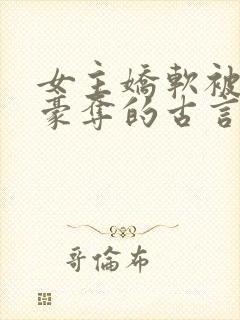 女主嬌軟被
豪奪的古言
哥倫布